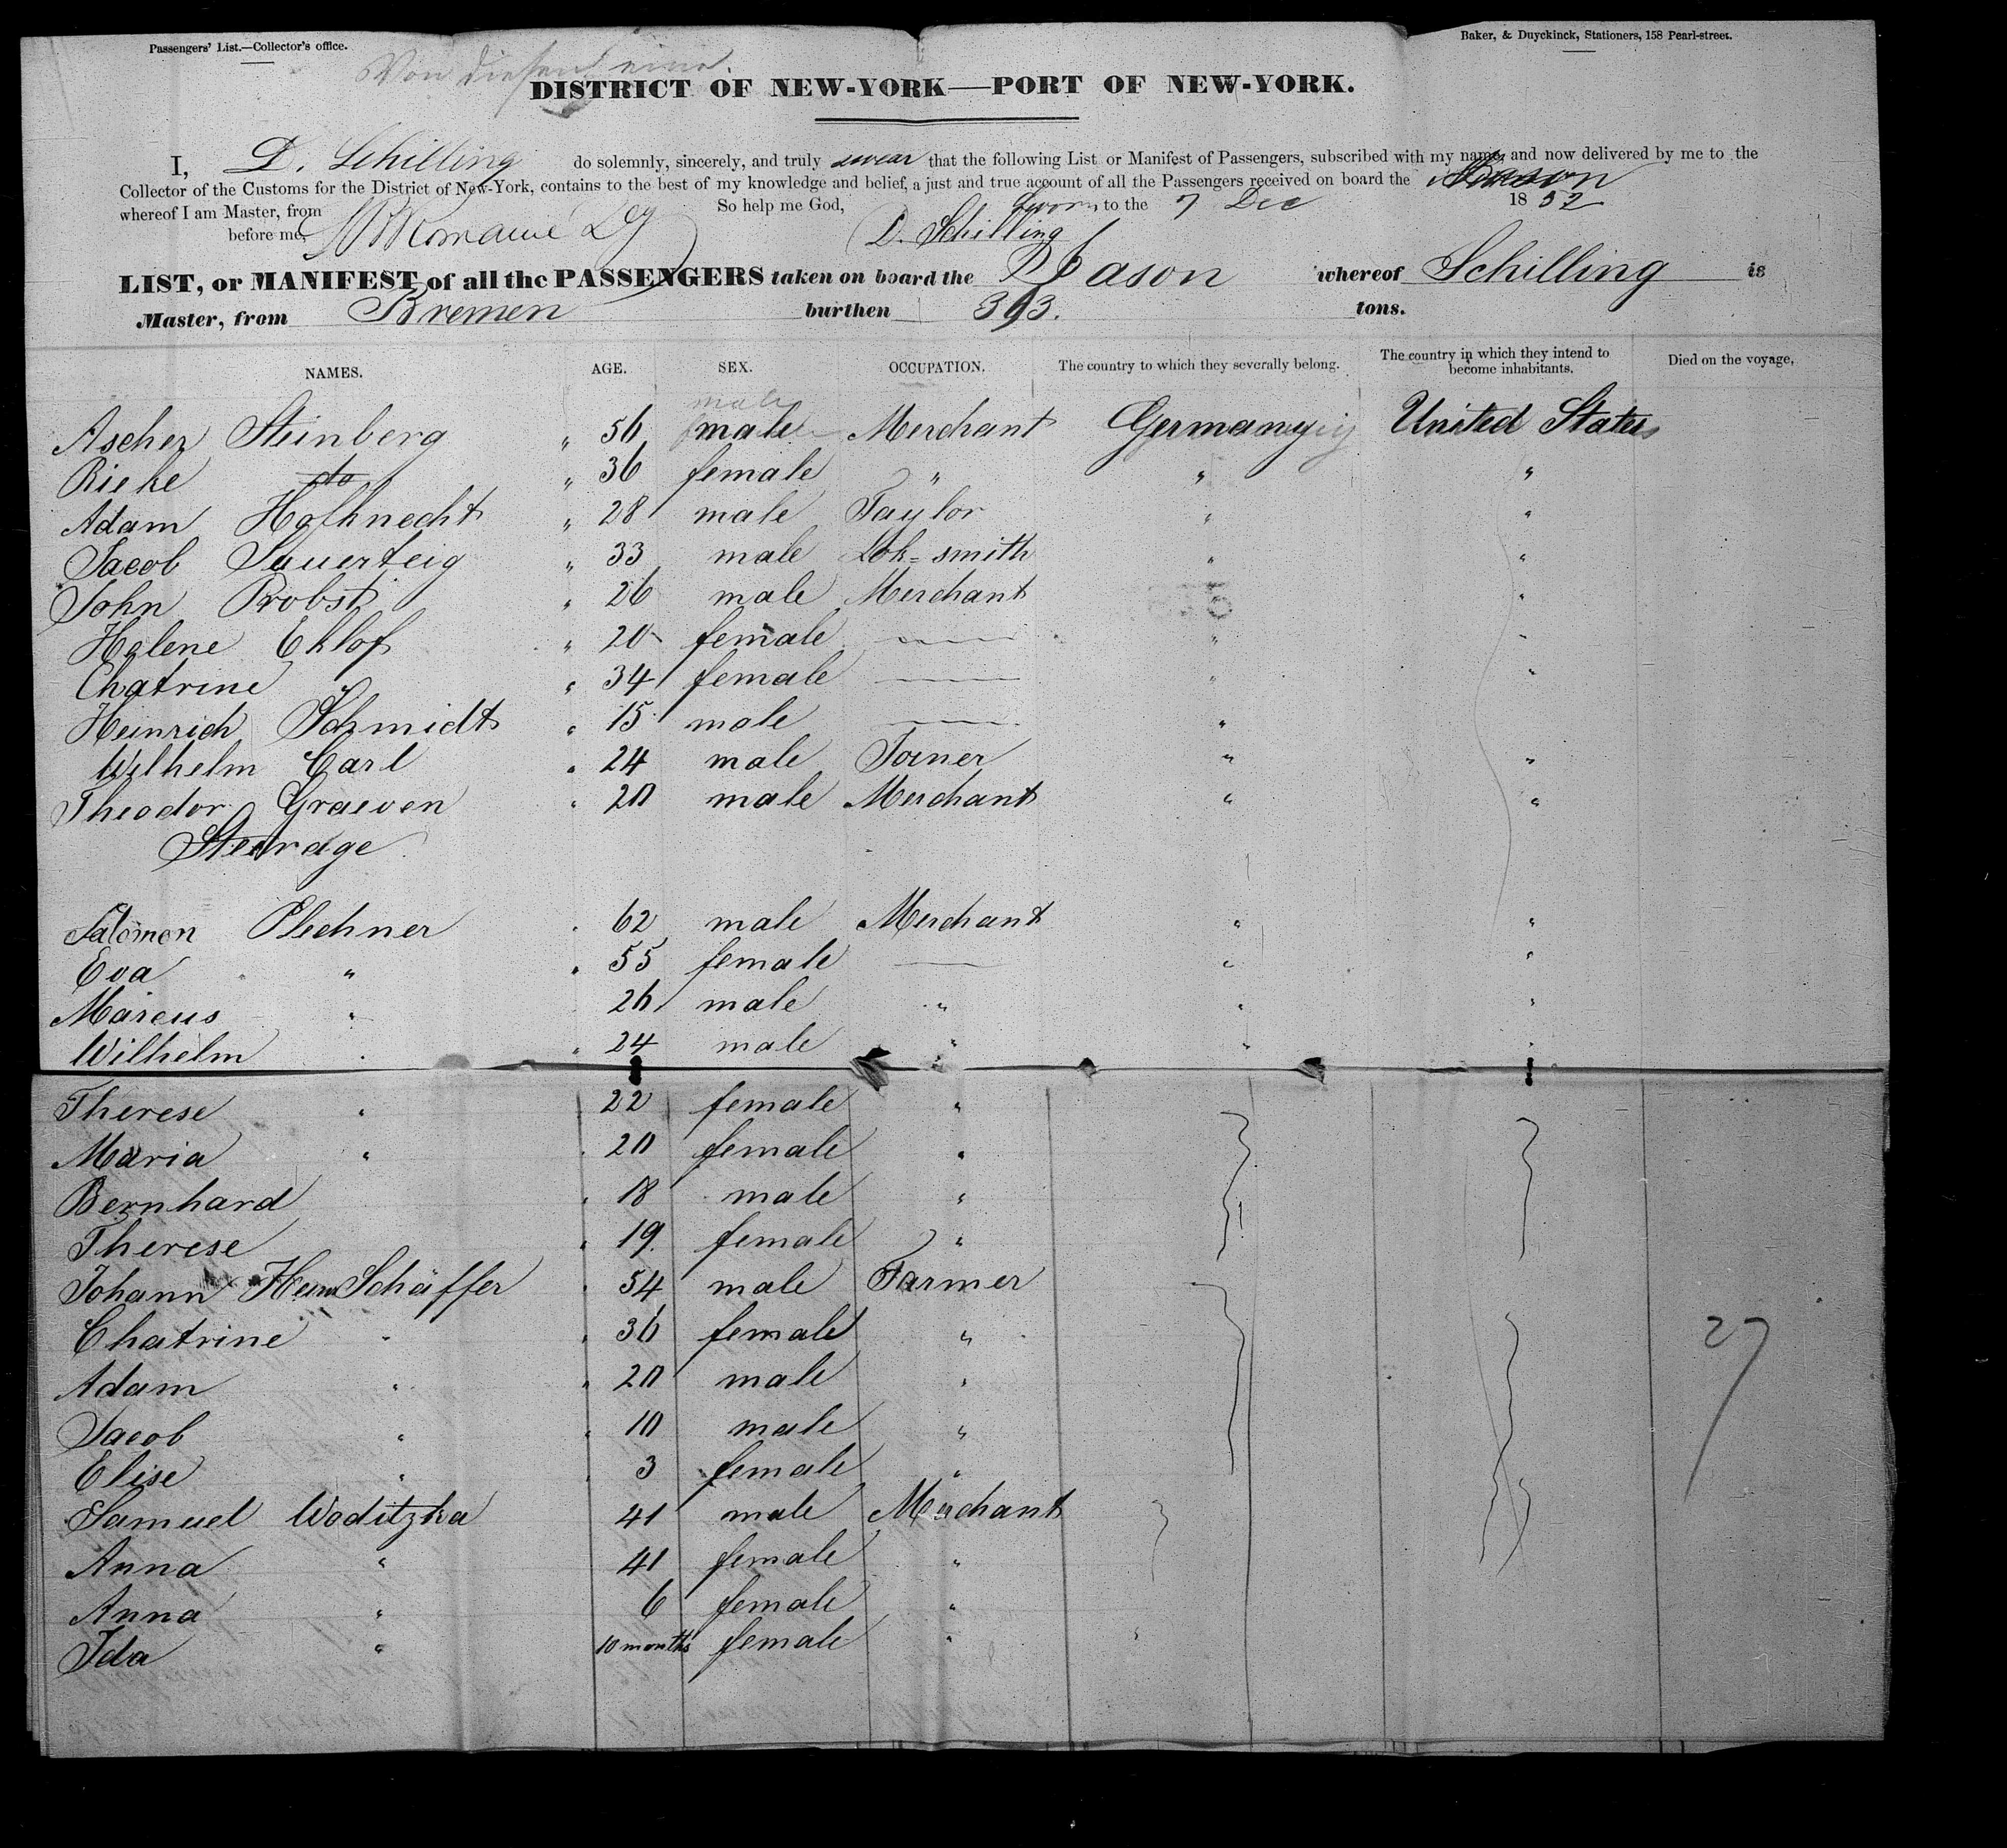 Passengers' List.—Collector's office.
Baker, & Duyckinck, Stationers, 158 Pearl-street.
Von diesen eine
DISTRICT OF NEW-YORK—PORT OF NEW-YORK.
I, D. Schilling do solemnly, sincerely, and truly swear that the following List or Manifest of Passengers, subscribed with my name, and now delivered by me to the
Collector of the Customs for the District of New-York, contains to the best of my knowledge and belief, a just and true account of all the Passengers received on board the
whereof I am Master, from So help me God, Sworn to the 7 Dec 1852
before me, D. Schilling
LIST, or MANIFEST of all the PASSENGERS taken on board the Jason whereof Schilling is
Master, from Bremen burthen 393. tons.
NAMES. AGE. SEX. OCCUPATION. The country to which they severally belong. The country in which they intend to become inhabitants. Died on the voyage,
male
Ascher Steinberg " 56 male Merchant Germany United States
Rieke do " 36 female " " "
Adam Hofknecht " 28 male Taylor " "
Jacob Sauerteig " 33 male Lok=smith " "
John Probst " 26 male Merchant " "
Helene Eklof " 20 female — " "
Chatrine " 34 female — " "
Heinrich Schmidt " 15 male — "
Wilhelm Carl " 24 male Joiner " "
Theodor Graeven " 20 male Merchant " "
Steerage
Salomon Plechner " 62 male Merchant " "
Eva " " 55 female — " "
Marcus " 26 male " " "
Wilhelm " " 24 male " " "
Therese " 22 female "
Maria " 20 female "
Bernhard " 18 male "
Therese " 19 female "
Johann Hein Schäffer " 54 male Farmer
Chatrine " " 36 female "
Adam " " 20 male "
Jacob " " 10 male "
Elise " 3 female "
27
Samuel Woditzka 41 male Merchant
Anna " 41 female "
Anna " 6 female "
Ida " 10 months female "